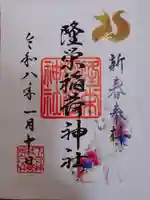 新春参拝
隆栄稲荷神社
令和八年一月十一日